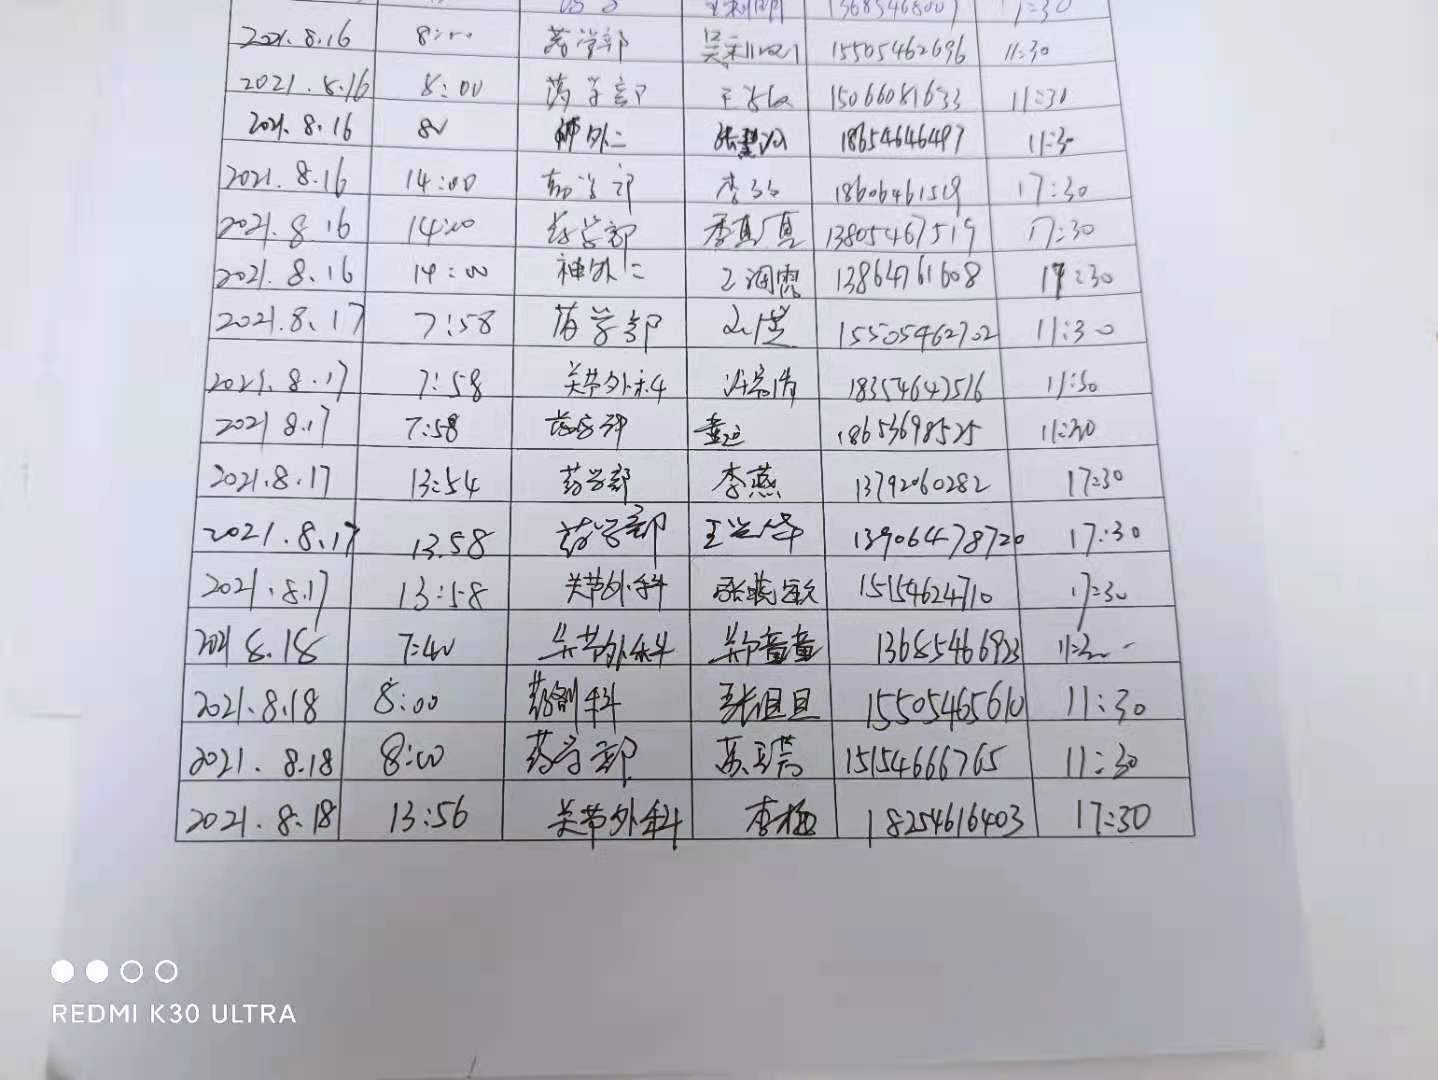 13685468009 11:30
2021.8.16 8:00 药学部 15505462696 11:30
2021.8.16 8:00 药学部 15066081633 11:30
2021.8.16 80 神外二 18654646497 11:30
2021.8.16 14:00 药学部 18606461519 17:30
2021.8.16 14:00 药学部 季真真 13805467519 17:30
2021.8.16 14:00 神外二 13864761608 17:30
2021.8.17 7:58 药学部 15505462702 11:30
2021.8.17 7:58 关节外科 18354642516 11:30
2021 8.17 7:58 18653698525 11:30
2021.8.17 13:54 药学部 李燕 13792060282 17:30
2021.8.17 13.58 药学部 13906478720 17:30
2021.8.17 13:58 关节外科 张晓敏 15154624710 17:30
2021 8.18 7:40 关节外科 郑童童 13685466923
2021.8.18 8:00 药剂科 张旦旦 15505465610 11:30
2021.8.18 8:00 药学部 15154666765 11:30
2021.8.18 13:56 关节外科 18254616403 17:30
REDMI K30 ULTRA